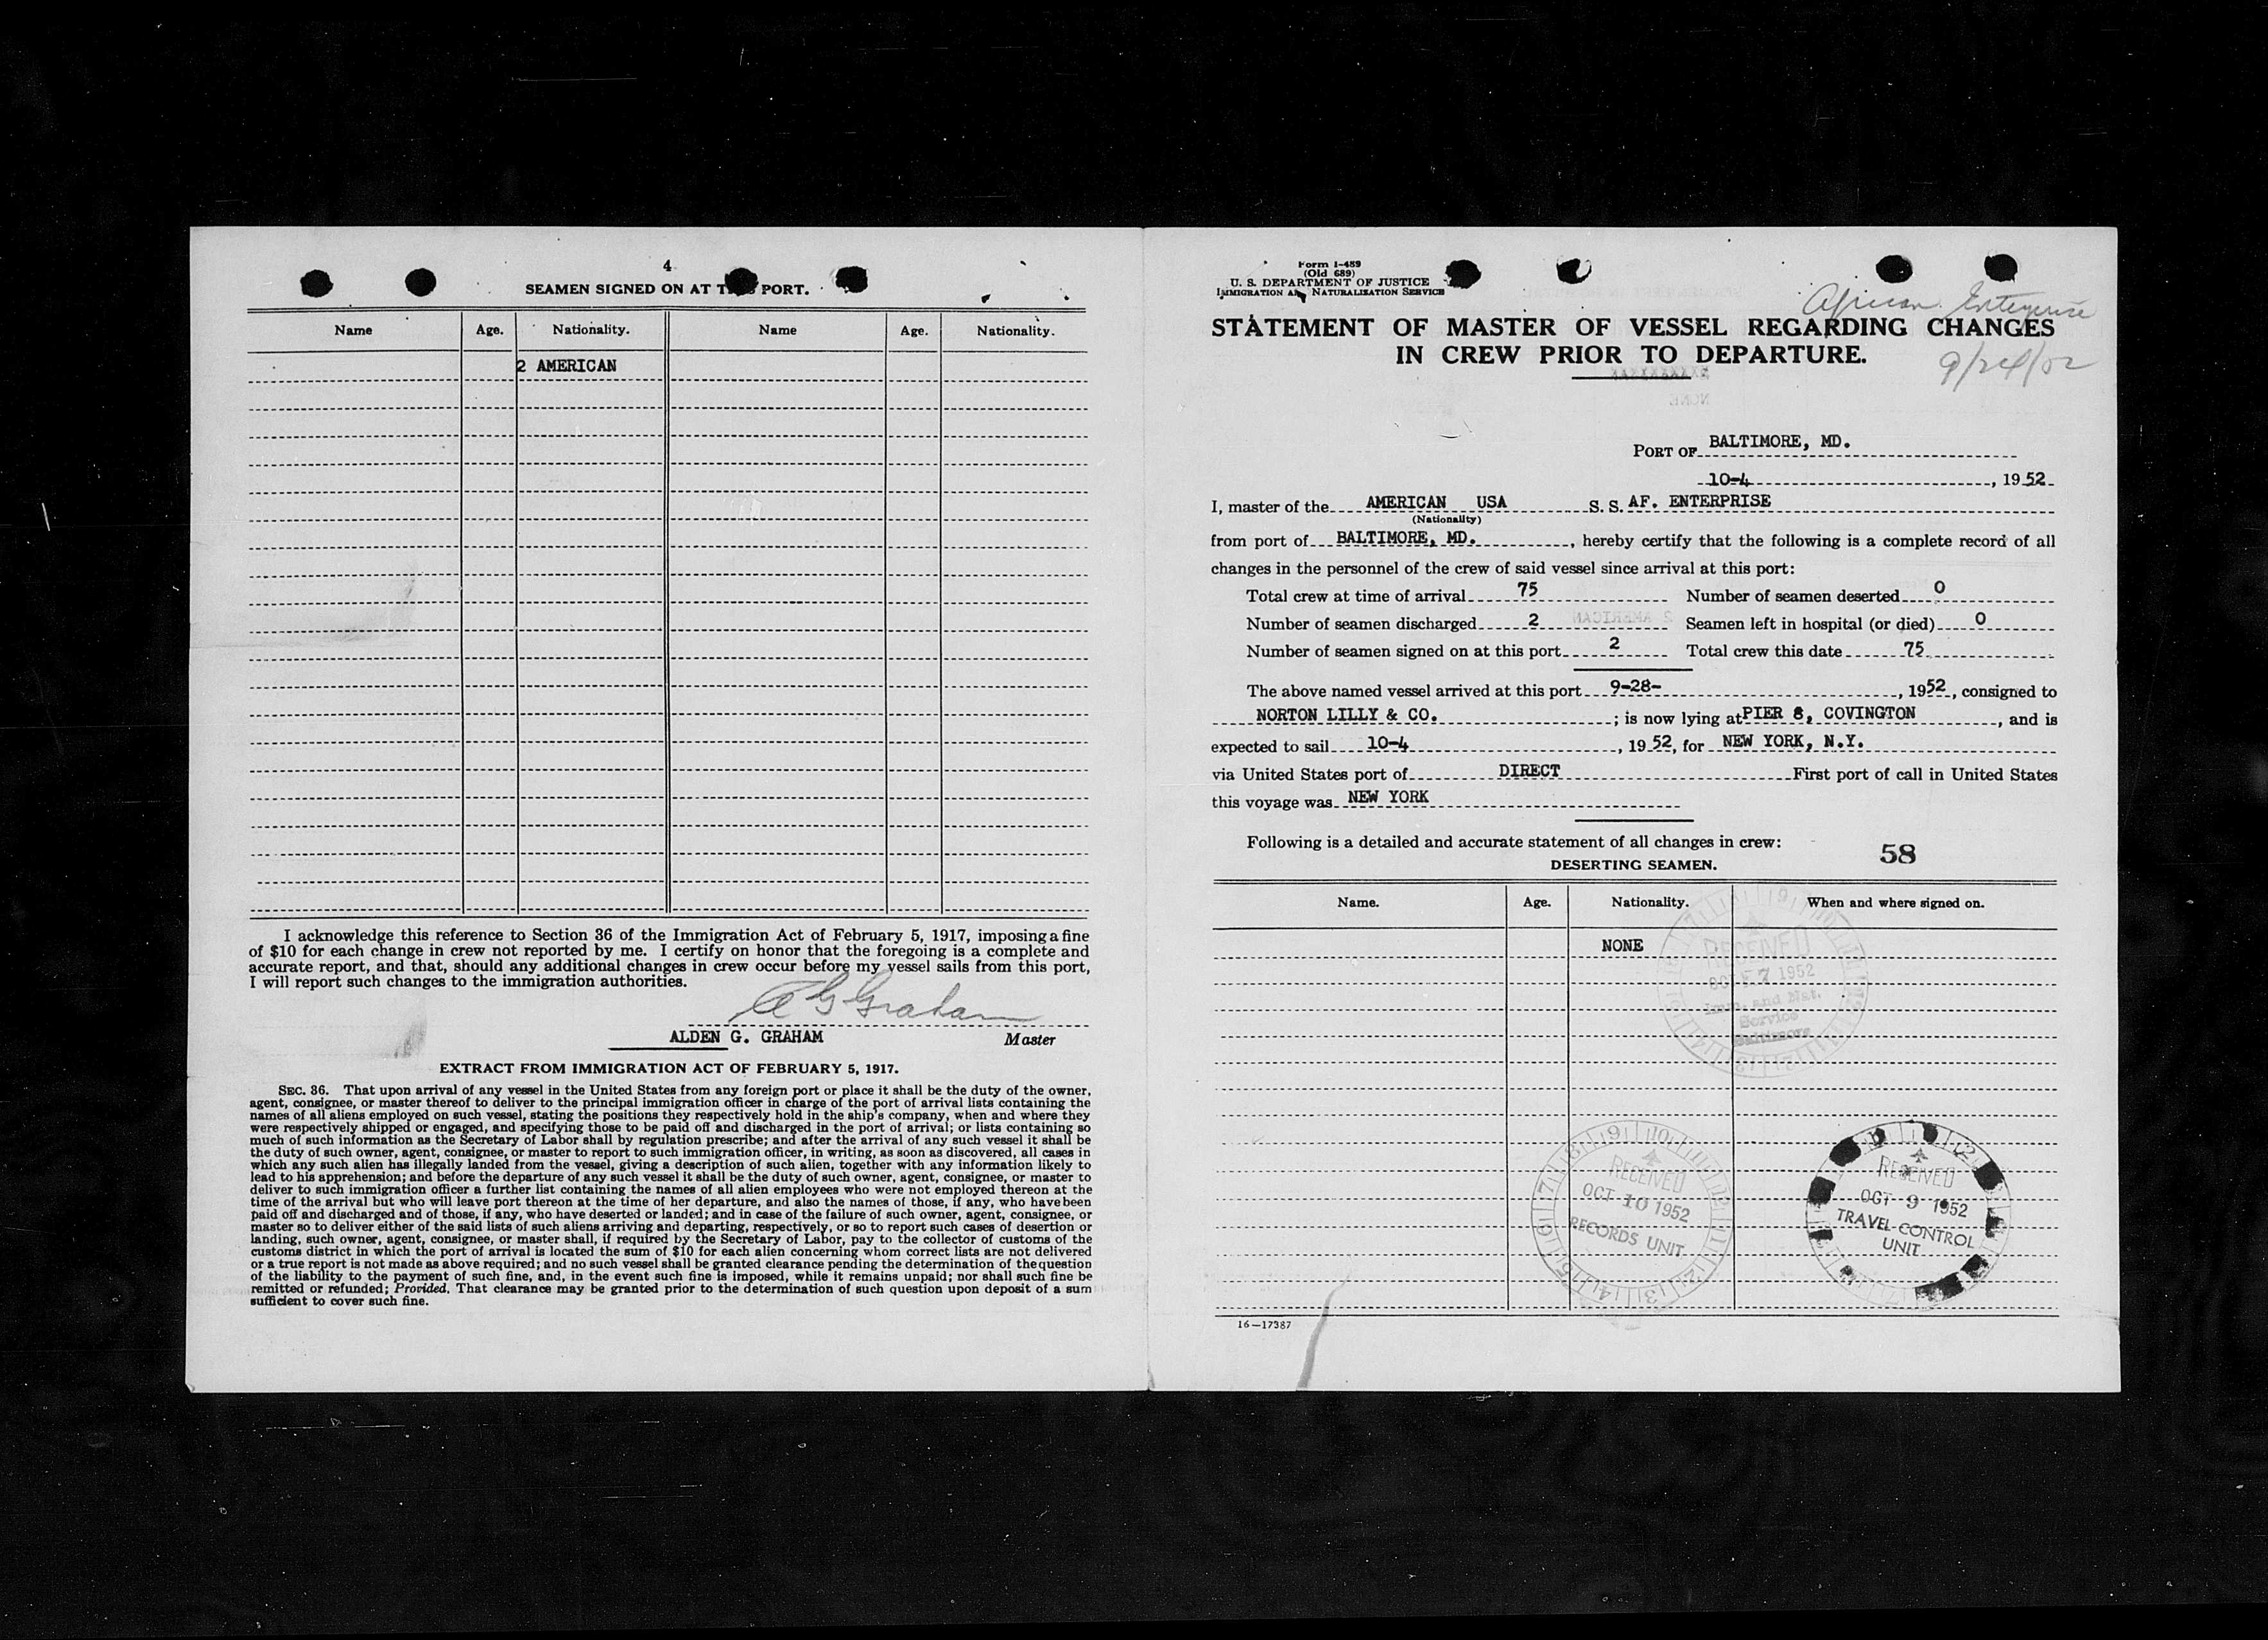 4
SEAMEN SIGNED ON AT PORT.
Name Age. Nationality. Name Age. Nationality.
2 AMERICAN
I acknowledge this reference to Section 36 of the Immigration Act of February 5, 1917, imposing a fine
of $10 for each change in crew not reported by me. I certify on honor that the foregoing is a complete and
accurate report, and that, should any additional changes in crew occur before my vessel sails from this port,
I will report such changes to the immigration authorities.
A G Graham
ALDEN G. GRAHAM Master
EXTRACT FROM IMMIGRATION ACT OF FEBRUARY 5, 1917.
SEC. 36. That upon arrival of any vessel in the United States from any foreign port or place it shall be the duty of the owner,
agent, consignee, or master thereof to deliver to the principal immigration officer in charge of the port of arrival lists containing the
names of all aliens employed on such vessel, stating the positions they respectively hold in the ship's company, when and where they
were respectively shipped or engaged, and specifying those to be paid off and discharged in the port of arrival; or lists containing so
much of such information as the Secretary of Labor shall by regulation prescribe; and after the arrival of any such vessel it shall be
the duty of such owner, agent, consignee, or master to report to such immigration officer, in writing, as soon as discovered, all cases in
which any such alien has illegally landed from the vessel, giving a description of such alien, together with any information likely to
lead to his apprehension; and before the departure of any such vessel it shall be the duty of such owner, agent, consignee, or master to
deliver to such immigration officer a further list containing the names of all alien employees who were not employed thereon at the
time of the arrival but who will leave port thereon at the time of her departure, and also the names of those, if any, who have been
paid off and discharged and of those, if any, who have deserted or landed; and in case of the failure of such owner, agent, consignee, or
master so to deliver either of the said lists of such aliens arriving and departing, respectively, or so to report such cases of desertion or
landing, such owner, agent, consignee, or master shall, if required by the Secretary of Labor, pay to the collector of customs of the
customs district in which the port of arrival is located the sum of $10 for each alien concerning whom correct lists are not delivered
or a true report is not made as above required; and no such vessel shall be granted clearance pending the determination of the question
of the liability to the payment of such fine, and, in the event such fine is imposed, while it remains unpaid; nor shall such fine be
remitted or refunded; Provided, That clearance may be granted prior to the determination of such question upon deposit of a sum
sufficient to cover such fine.
Form I-489
(Old 689)
U. S. DEPARTMENT OF JUSTICE
IMMIGRATION AND NATURALIZATION SERVICE
African Enterprise
STATEMENT OF MASTER OF VESSEL REGARDING CHANGES
IN CREW PRIOR TO DEPARTURE.
9/24/52
PORT OF BALTIMORE, MD.
10-4, 1952
I, master of the AMERICAN USA S. S. AF. ENTERPRISE
(Nationality)
from port of BALTIMORE, MD., hereby certify that the following is a complete record of all
changes in the personnel of the crew of said vessel since arrival at this port:
Total crew at time of arrival 75 Number of seamen deserted 0
Number of seamen discharged 2 Seamen left in hospital (or died) 0
Number of seamen signed on at this port 2 Total crew this date 75
The above named vessel arrived at this port 9-28-, 1952, consigned to
NORTON LILLY & CO. ; is now lying at PIER 8, COVINGTON, and is
expected to sail 10-4, 1952, for NEW YORK, N.Y.
via United States port of DIRECT First port of call in United States
this voyage was NEW YORK
Following is a detailed and accurate statement of all changes in crew:
58
DESERTING SEAMEN.
Name. Age. Nationality. When and where signed on.
NONE
RECEIVED
OCT 7 1952
Imm. and Nat.
Service
Baltimore
RECEIVED
OCT 10 1952
RECORDS UNIT
RECEIVED
OCT 9 1952
TRAVEL CONTROL
UNIT
16—17387